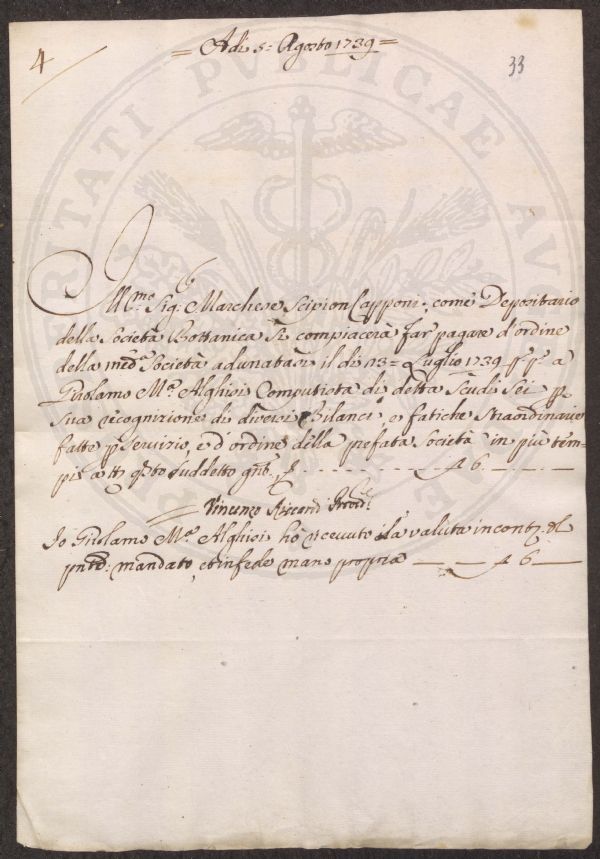 4
= Adi 5 = Agosto 1739 =
33
Ill.mo Sig.r Marchese Scipion Capponi, come Depositario
della Società Bottanica Si compiacerà far pagare d'ordine
della med.a Società adunatasi il dì 13 = Luglio 1739 a
Girolamo M.a Alghisi Computista di detta Scudi Sei p
Sua recognizione di diversi Bilanci, e fatiche straordinarie
fatte p Servizio, e d'ordine della prefata Società in più tem-
pi a tt.o q.sto suddetto gno. 6.
Vincenzo Riccardi
Io Girolamo M.a Alghisi hò ricevuto la valuta in cont.i del
pnte: mandato, et in fede mano propria 6
VERITATI PUBLICAE